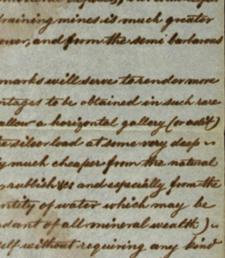 draining mines is much greater
and from the semi barbarous
marks will serve to render more
to be obtained in such
allow a horizontal gallery (or adit)
silver load at some very deep
much cheaper from the natural
and especially from the
of water which may be
of all mineral wealth)
without requiring any kind